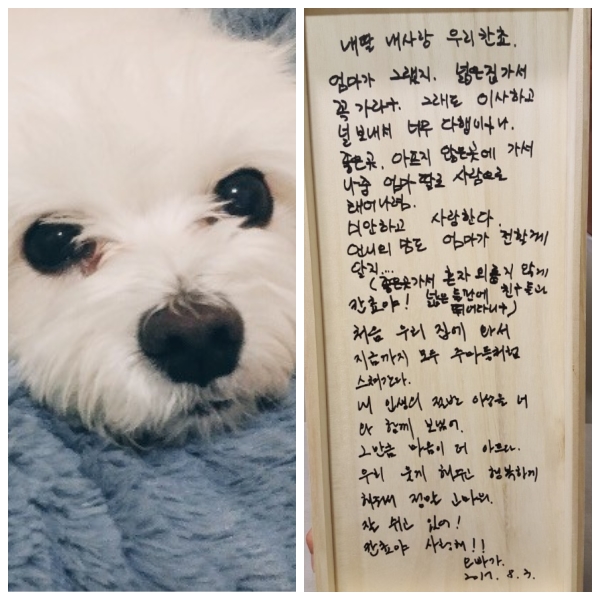 내딸 내사랑 우리 칸쵸.
엄마가 그랬지. 넓은집 가서
꼭 가라구. 그래도 이사하고
널 보내서 너무 다행이구나.
좋은곳. 아프지 않은곳에 가서
나중 엄마 딸로 사람으로
태어나렴.
미안하고 사랑한다.
언니의 맘도 엄마가 전할게
알지...
(좋은곳가서 혼자 외롭지 않게
칸쵸야! 넓은 들판에 친구들과
뛰어다니구)
처음 우리 집에 와서
지금까지 모두 주마등처럼
스쳐간다.
내 인생의 절반 이상을 너
와 함께 보냈어.
그만큼 마음이 더 아프다.
우리 웃게 해주고 행복하게
해줘서 정말 고마워.
잘 쉬고 있어!
칸쵸야 사랑해!!
오빠가.
2017. 8. 3.